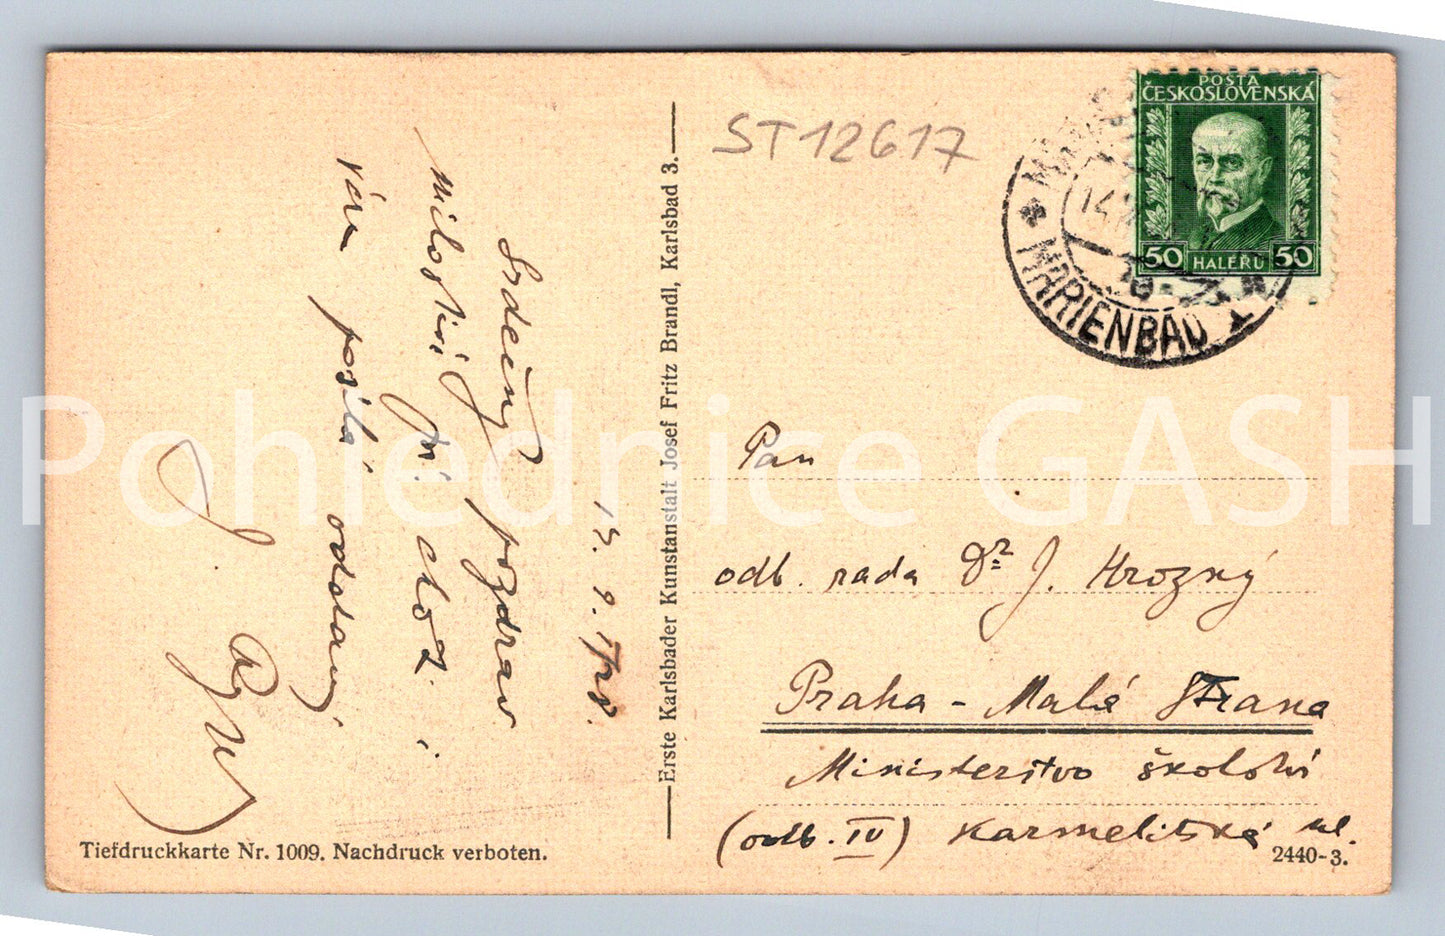 ST12617
POSTA
ČESKOSLOVENSKÁ
50 HALÉŘŮ 50
MARIENBAD
Srdečný pozdrav
milostivé pí. choti i
vám posílá oddaný
Erste Karlsbader Kunstanstalt Josef Fritz Brandl, Karlsbad 3.
Pan
odb. rada Dr J. Hrozný
Praha - Malá Strana
Ministerstvo školství
(odb. IV) Karmelitská ul.
Tiefdruckkarte Nr. 1009. Nachdruck verboten.
2440-3.
Pohlednice GASH